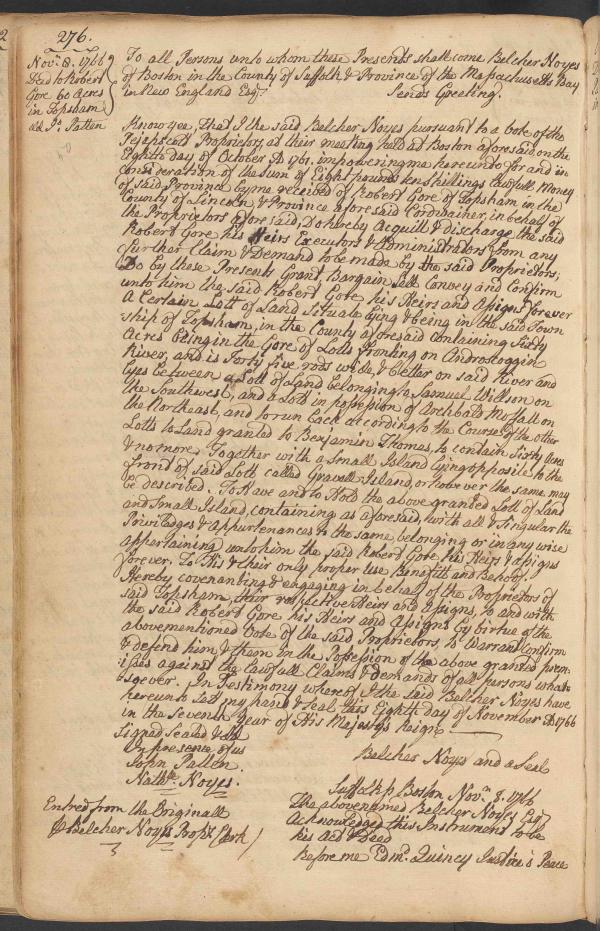 276.
Nov.r 8. 1766
Deed to Robert
Gore 60 Acres
in Topsham
dd Jn.o Patten
To all Persons unto whom these Presents shall come Belcher Noyes
of Boston in the County of Suffolk & Province of the Massachusetts Bay
in New England Esq.r Sends Greeting.
Know yee, that I the said Belcher Noyes pursuant to a Vote of the
Pejepscot Proprietors, at their meeting held at Boston aforesaid, on the
Eighth day of October AD 1761. impowering me hereunto for and in
consideration of the sum of Eight pounds ten shillings lawfull Money
of said Province by me received of Robert Gore of Topsham in the
County of Lincoln & Province aforesaid Cordwainer, in behalf of
the Proprietors aforesaid, Do hereby Acquitt & Discharge the said
Robert Gore his Heirs Executors & Administrators from any
further Claim & Demand to be made by the said Proprietors;
Do by these Presents Grant Bargain Sell Convey and Confirm
unto him the said Robert Gore, his Heirs and Assigns forever
A Certain Lott of Land Situate lying & being in the said Town
ship of Topsham, in the County aforesaid containing Sixty
Acres being in the Gore of Lotts fronting on Androskoggin
River, and is Forty five rods wide, & better on said River and
lyes between a Lott of Land belonging to Samuel Willson on
the Southwest, and a Lott in possession of Archibald Moffatt on
the Northeast, and to run back according to the Course of the other
Lotts to Land granted to Benjamin Thomas, to contain Sixty Acres
& no more. Together with a Small Island lying opposite to the
front of said Lott called Gravell-Island, or however the same may
be described. To Have and to Hold the above granted Lott of Land
and Small Island, containing as aforesaid, with all & Singular the
Priviledges & Appurtenances to the same belonging or in any wise
appertaining unto him the said Robert Gore his Heirs & Assigns
forever, To His & their only proper Use Benefitt and Behoof.
Hereby covenanting & engaging in behalf of the Proprietors of
said Topsham, their respective Heirs and Assigns, to and with
the said Robert Gore his Heirs and Assigns by virtue of the
abovementioned Vote of the said Proprietors, to Warrant Confirm
& defend him & them in the Possession of the above granted prem-
isses against the lawfull Claims & demands of all persons what-
soever. In Testimony whereof I the said Belcher Noyes have
hereunto Sett my hand & Seal this Eighth day of November AD 1766
in the Seventh Year of His Majestys Reign.
Signed Sealed & dd
In presence of us
John Patten
Nath.ll Noyes.
Belcher Noyes and a Seal
Suffolk ss Boston Nov.r 8. 1766
The abovenamed Belcher Noyes Esq.r
Acknowledged this Instrument to be
his Act & Deed
Before me Edm.d Quincy Justice o Peace
Entred from the Originall
p Belcher Noyes Prop.rs Clerk